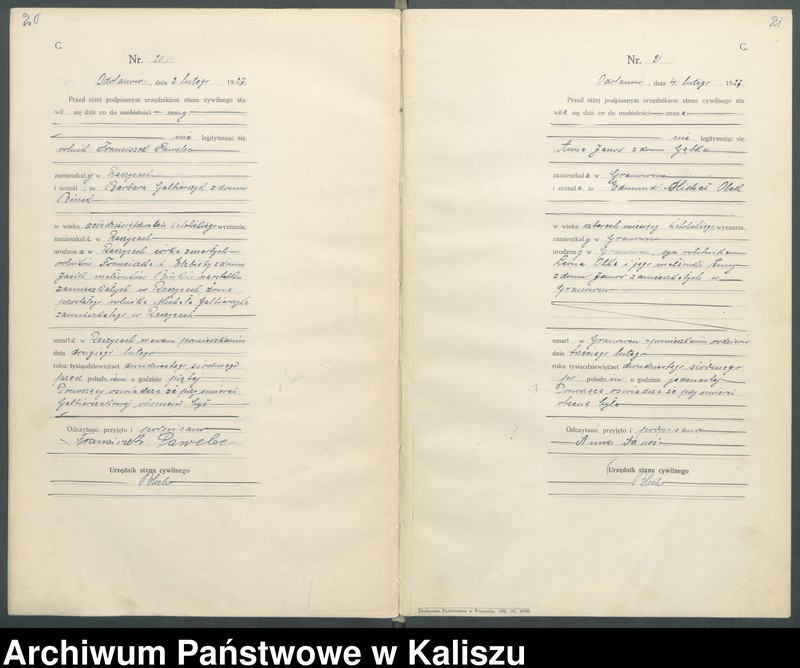 20
C.
Nr. 20
Odolanów, dnia 2 lutego 1927.
Przed niżej podpisanym urzędnikiem stanu cywilnego sta-
wił się dziś co do osobistości — znany
nie legitymując się.
rolnik Franciszek Pawelec
zamieszkały w Raczycach
i zeznał, że Barbara Galbierczyk z domu
w wieku katolickiego wyznania,
zamieszkała w Raczycach
urodzona w Raczycach córka zmarłych
rolników Franciszka i Elżbiety z domu
małżonków
zamieszkałych w Raczycach żona
rolnika Michała
zamieszkałego w Raczycach
umarła w Raczycach w swem pomieszkaniu
dnia drugiego lutego
roku tysiącdziewięćset dwudziestego siódmego
przed południem o godzinie piątej
Donoszący oświadcza że przy śmierci
obecnym był
Odczytano, przyjęto i podpisano
Franciszek Pawelec
Urzędnik stanu cywilnego
21
C.
Nr. 21
Odolanów, dnia 4 lutego 1927.
Przed niżej podpisanym urzędnikiem stanu cywilnego sta-
wiła się dziś co do osobistości — znana
nie legitymując się.
Anna Janoś z domu Gątka
zamieszkała w Granowcu
i zeznała, że Edmund Michał Olek
w wieku czterech miesięcy katolickiego wyznania,
zamieszkały w Granowcu
urodzony w Granowcu, syn robotnika
i jego małżonki Anny
z domu Janoś zamieszkałych w
Granowcu
umarł w Granowcu w pomieszkaniu rodziców
dnia trzeciego lutego
roku tysiącdziewięćset dwudziestego siódmego
po południu o godzinie jedenastej
Donosząca oświadcza że przy śmierci
obecną była
Odczytano, przyjęto i podpisano
Anna Janoś
Urzędnik stanu cywilnego
Drukarnia Państwowa w Poznaniu.
Archiwum Państwowe w Kaliszu